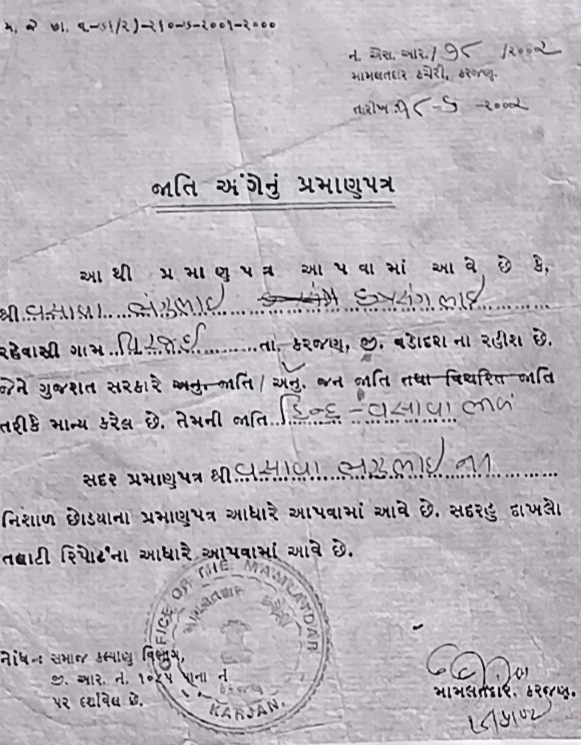 મ. રે ભા. વ-૭૧/૨)-૨૧૦-૫-૨૦૦૧-૨૦૦૦
નં. એસ. આર./ ૧૮ /૨૦૦૨
મામલતદાર કચેરી, કરજણ.
તારીખ ૧૮-૬-૨૦૦૨
જાતિ અંગેનું પ્રમાણપત્ર
આથી પ્રમાણપત્ર આપવામાં આવે છે કે,
શ્રી વસાવા છત્રસંગભાઈ
રહેવાસી ગામ તા. કરજણ, જી. વડોદરા ના રહીશ છે.
જેને ગુજરાત સરકારે અનુ. જાતિ / અનું. જન જાતિ તથા વિચરિત જાતિ
તરીકે માન્ય કરેલ છે. તેમની જાતિ હિન્દુ - વસાવા ભીલ
સદર પ્રમાણપત્ર શ્રી વસાવા ના
નિશાળ છોડયાના પ્રમાણપત્ર આધારે આપવામાં આવે છે. સદરહુ દાખલો
તલાટી રિપોર્ટના આધારે આપવામાં આવે છે.
OFFICE OF THE MAMLATDAR
મામલતદાર
કરજણ
KARJAN.
નોંધ:- સમાજ કલ્યાણ વિભાગ,
જી. આર. નં. ૧૦૨૫ પાના નં
૫૨ દર્શાવેલ છે.
મામલતદાર. કરજણ.